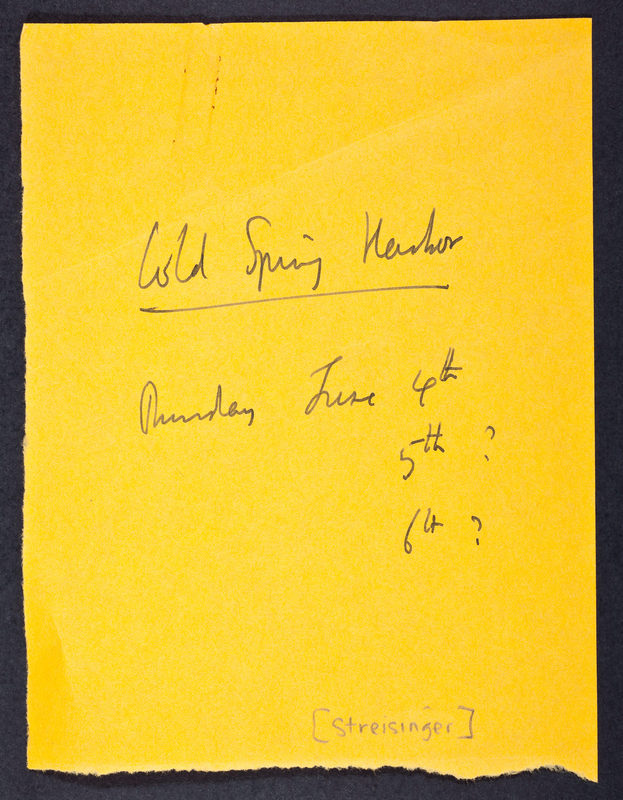 Cold Spring Harbor
Thursday June 4th
5th ?
6th ?
[streisinger]